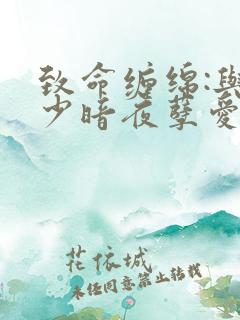 致命缠绵:与
少暗夜孽爱
花依城
未经同意禁止转载